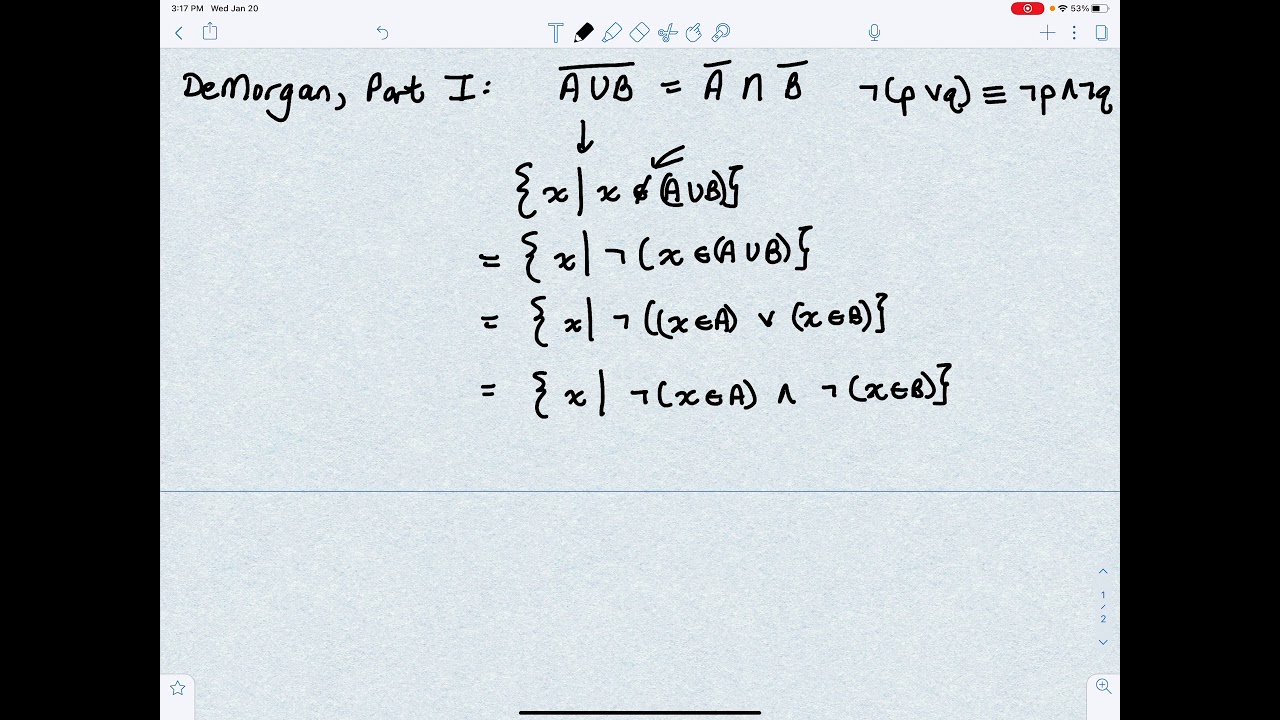 3:17 PM Wed Jan 20 53%
DeMorgan, Part I: A̅ ̅∪̅ ̅B̅ = A̅ ∩ B̅ ¬(p ∨ q) ≡ ¬p ∧ ¬q
↓
{ x | x ∉ (A ∪ B)}
= { x | ¬ (x ∈ (A ∪ B)}
= { x | ¬ ((x ∈ A) ∨ (x ∈ B)}
= { x | ¬ (x ∈ A) ∧ ¬ (x ∈ B)}
1
/
2